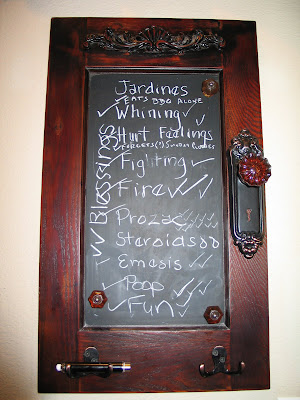 Jardines
EATS BBQ ALONE
Whining
Hurt Feelings
Fighting
Fire
Prozac
Steroids
Emesis
Poop
Fun
Blessings